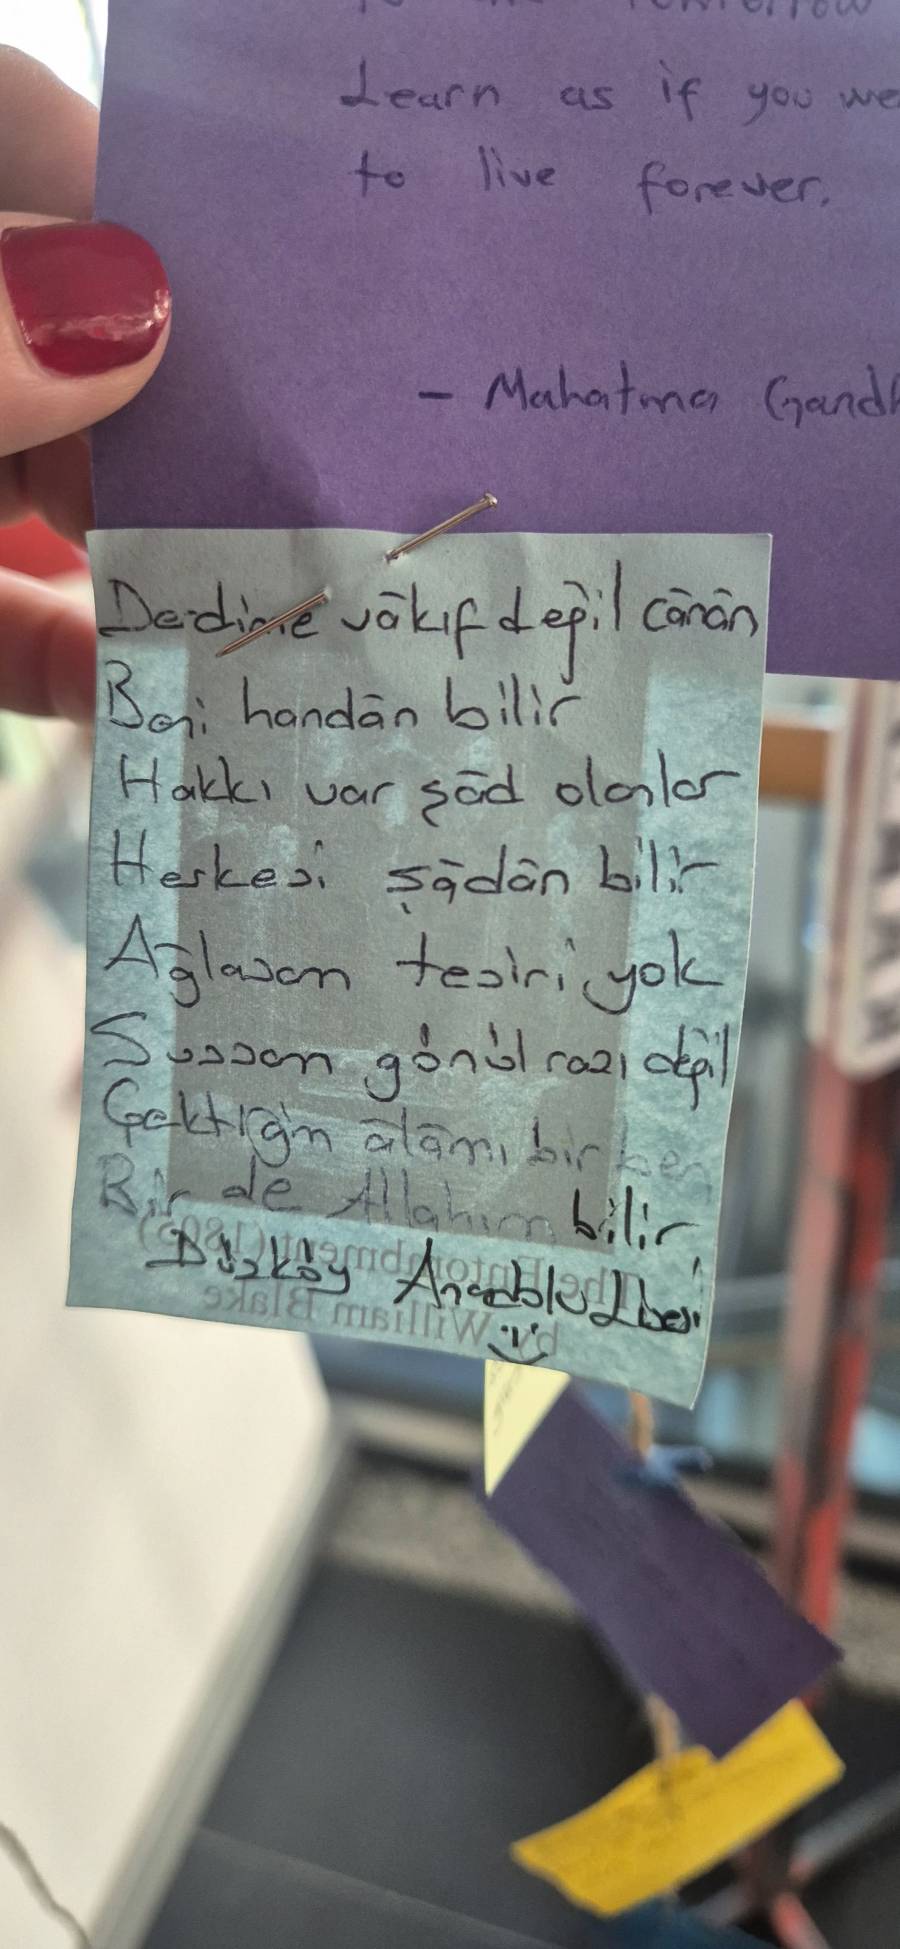 Learn as if you we
to live forever.
- Mahatma Gandh
Derdime vâkıf değil cânân
Beni handân bilir
Hakkı var şâd olanlar
Herkesi şâdân bilir
Ağlasam tesiri yok
Sussam gönül razı değil
Çektiğim âlâmı bir ben
Bir de Allahım bilir
Düzköy Anadolu Lisesi
by William Blake